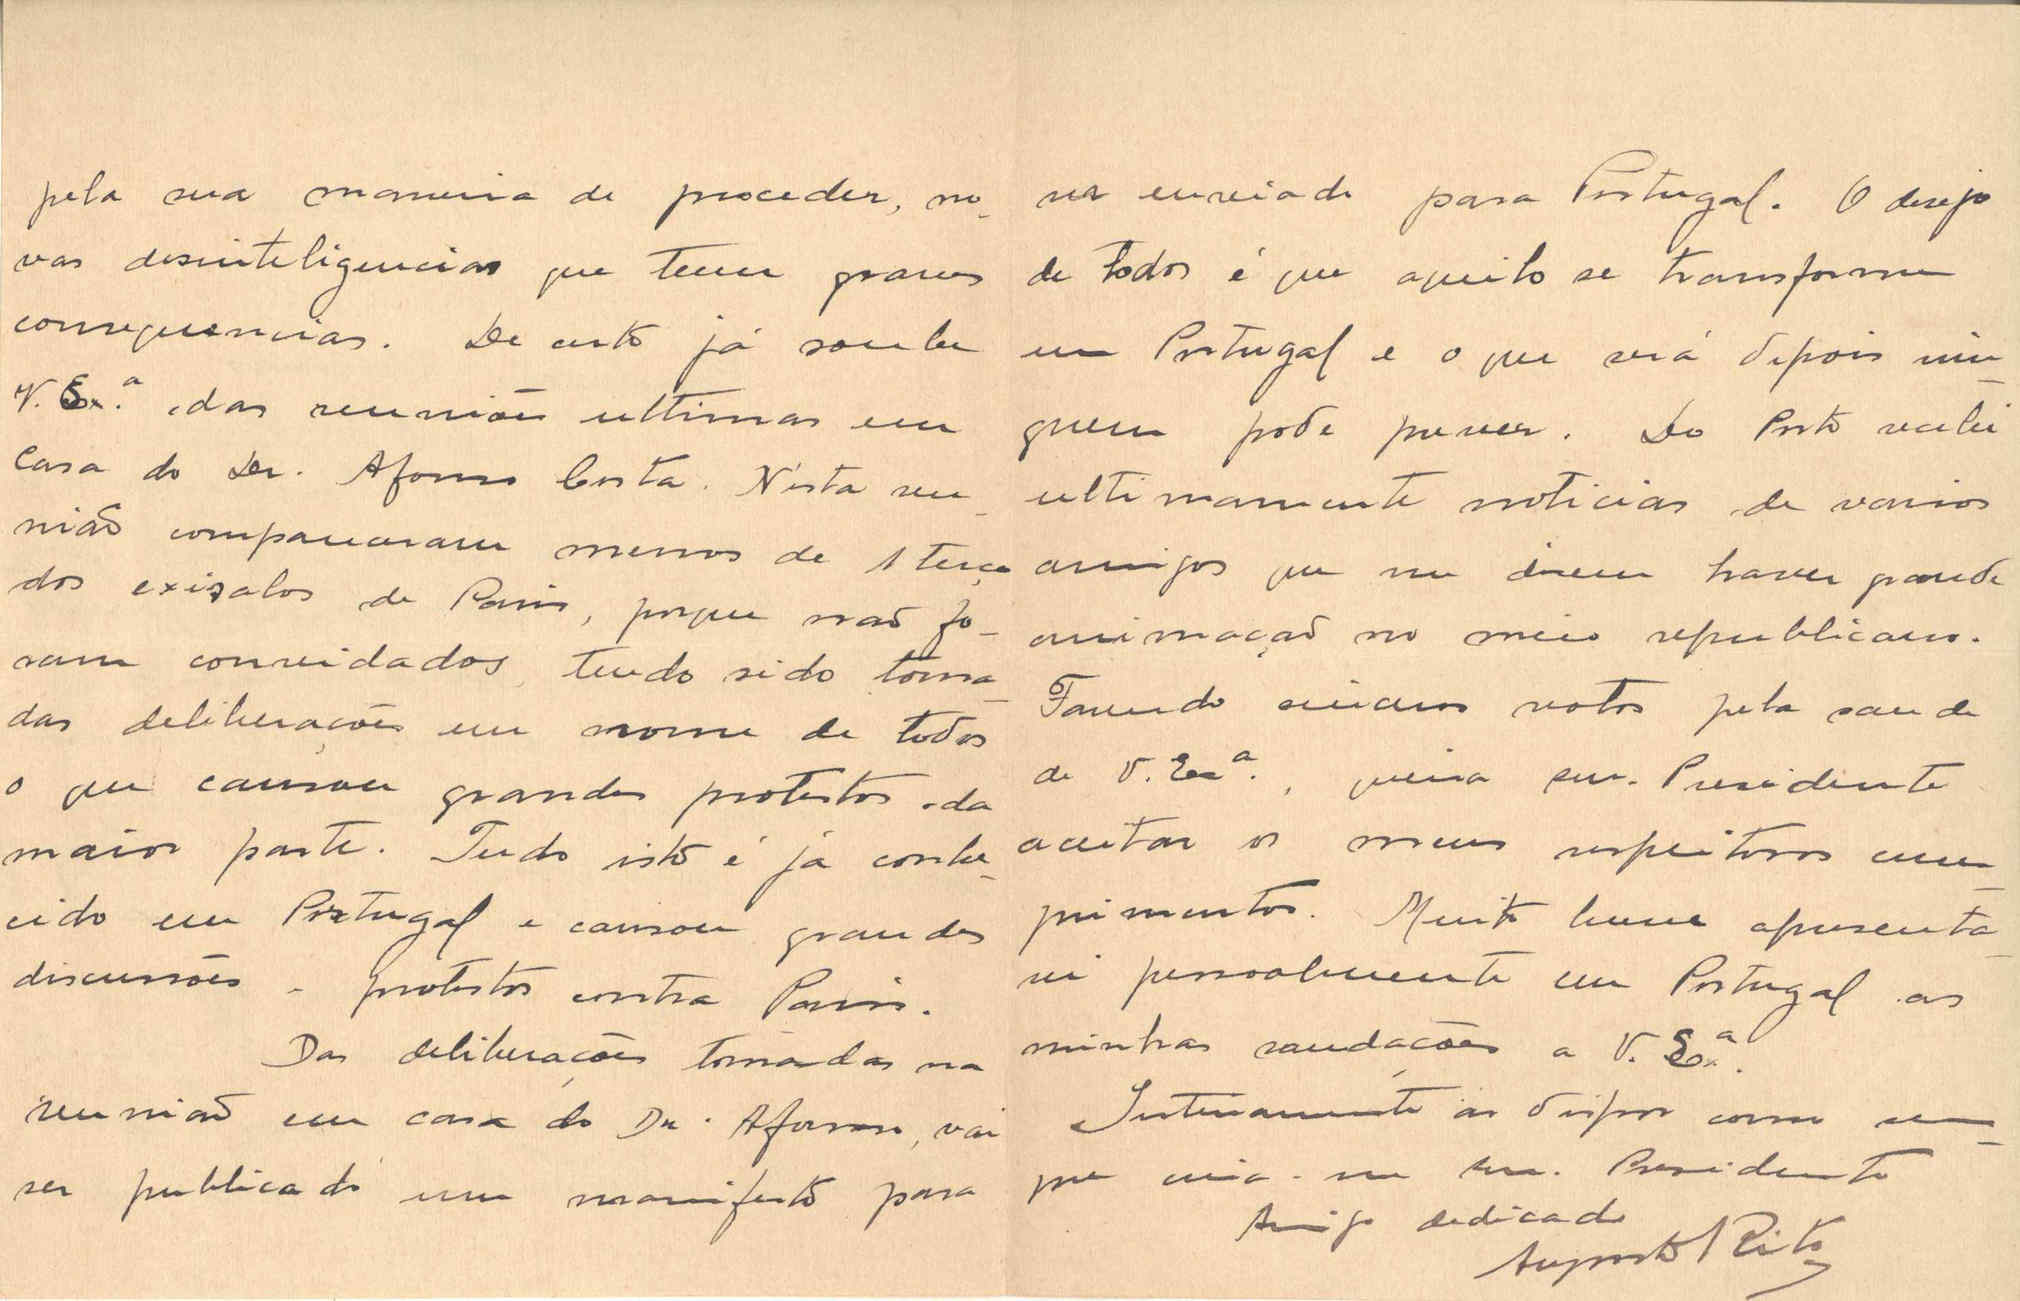 pela sua maneira de proceder, no-
vas desinteligencias que teem graves
consequencias. De certo já soube
V. Ex.ª das reuniões ultimas em
casa do Dr. Afonso Costa. N'esta reu-
nião compareceram menos de 1 terço
dos exilados de Paris, porque não fo-
ram convidados, tendo sido toma-
das deliberações em nome de todos
o que causou grandes protestos da
maior parte. Tudo isto é já conhe-
cido em Portugal e causou grandes
discussões e protestos contra Paris.
Das deliberações tomadas na
reunião em casa do Dr. Afonso, vai
ser publicado um manifesto para
ser enviado para Portugal. O desejo
de todos é que aquilo se transforme
em Portugal e o que será depois nin-
guem pode prever. Do Porto recebi
ultimamente noticias de varios
amigos que me dizem haver grande
animação no meio republicano.
Fazendo sinceros votos pela saude
de V. Exª., queira snr. Presidente
aceitar os meus respeitosos cum-
primentos. Muito breve apresenta-
rei pessoalmente em Portugal as
minhas saudações a V. Ex.ª
Inteiramente ao dispor como sem-
pre creia-me snr. Presidente
Amigo dedicado
Augusto Rito